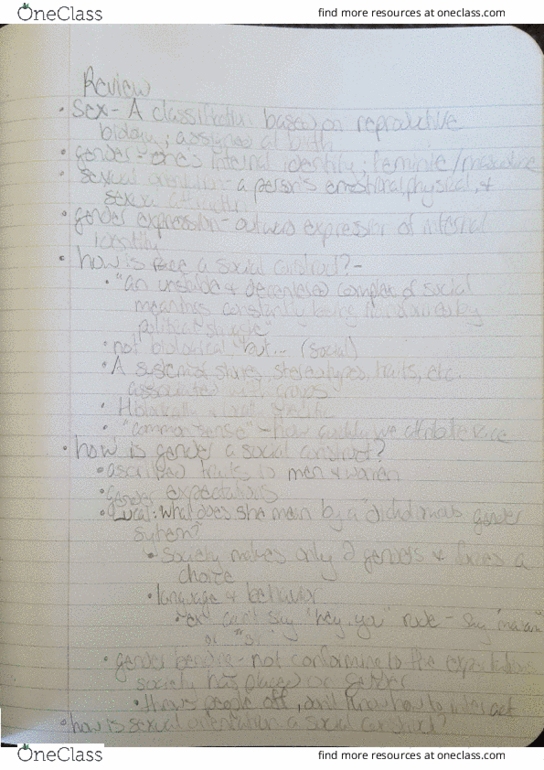 OneClass
find more resources at oneclass.com
Review
• Sex - A classification based on reproductive
biology; assigned at birth
• gender - one's internal identity; feminine/masculine
• sexual orientation - a person's emotional, physical, &
sexual attraction
• gender expression - outward expression of internal
identity
• how is race a social construct? -
• "an unstable & decentered complex of social
meanings constantly being transformed by
political struggle"
• not biological but... (social)
• A system of stereotypes, traits, etc.
associated with groups
• Historically & specific
• "common sense" - how quickly we attribute race
• how is gender a social construct?
• ascribed traits to men & women
• gender expectations
• what does she mean by a "dichotomous gender
system"?
• society makes only 2 genders & forces a
choice
• language & behavior
• ex can't say "hey, you" rude - say "ma'am"
or "sir"
• gender bending - not conforming to the expectations
society has placed on gender
• throws people off, don't know how to interact
• how is sexual orientation a social construct?
OneClass
find more resources at oneclass.com